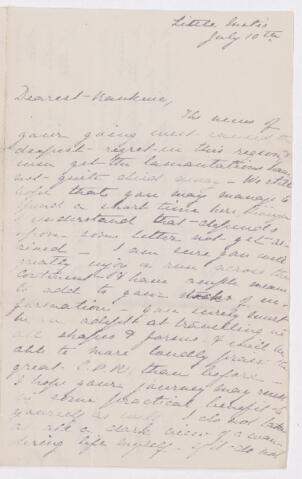 Little Metis
July 10th
Dearest
The news of
your going west caused the
deepest regret in this region &
even yet the lamentations have
not quite died away - We still
hope that you may manage to
spend a short time here though
I understand that depends
upon some letter not yet re-
ceived - I am sure you will
greatly enjoy a run across the
continent & have ample means
to add to your stock of in-
formation - You surely must
be an adept at travelling in
all shapes & forms & will be
able to more loudly praise the
great C.P.R. than before -
I hope your journey may result
in some practical benefit to
yourself as well. I do not take
at all a dark view of a wan-
dering life myself - if it do not